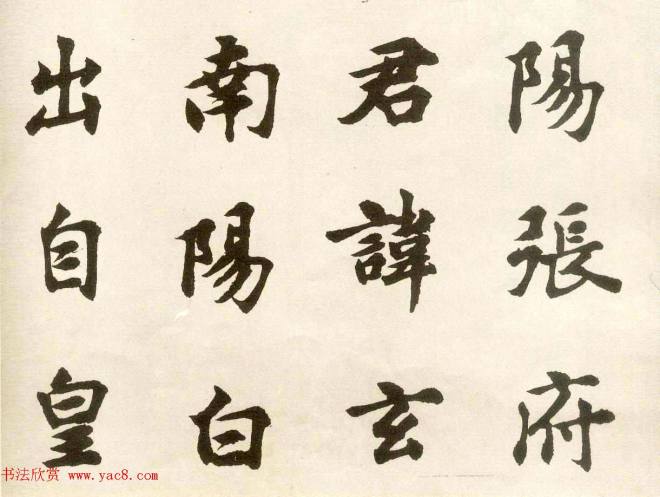 陽張府
君諱玄
南陽白
出自皇
书法欣赏 www.yac8.com